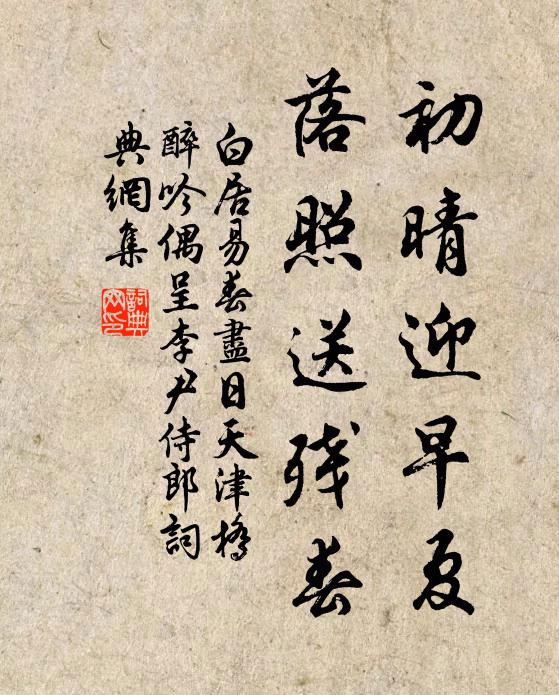 初晴迎早夏
落照送残春
白居易春盡日天津橋
醉吟偶呈李尹侍郎詞
典網集
詞典網印